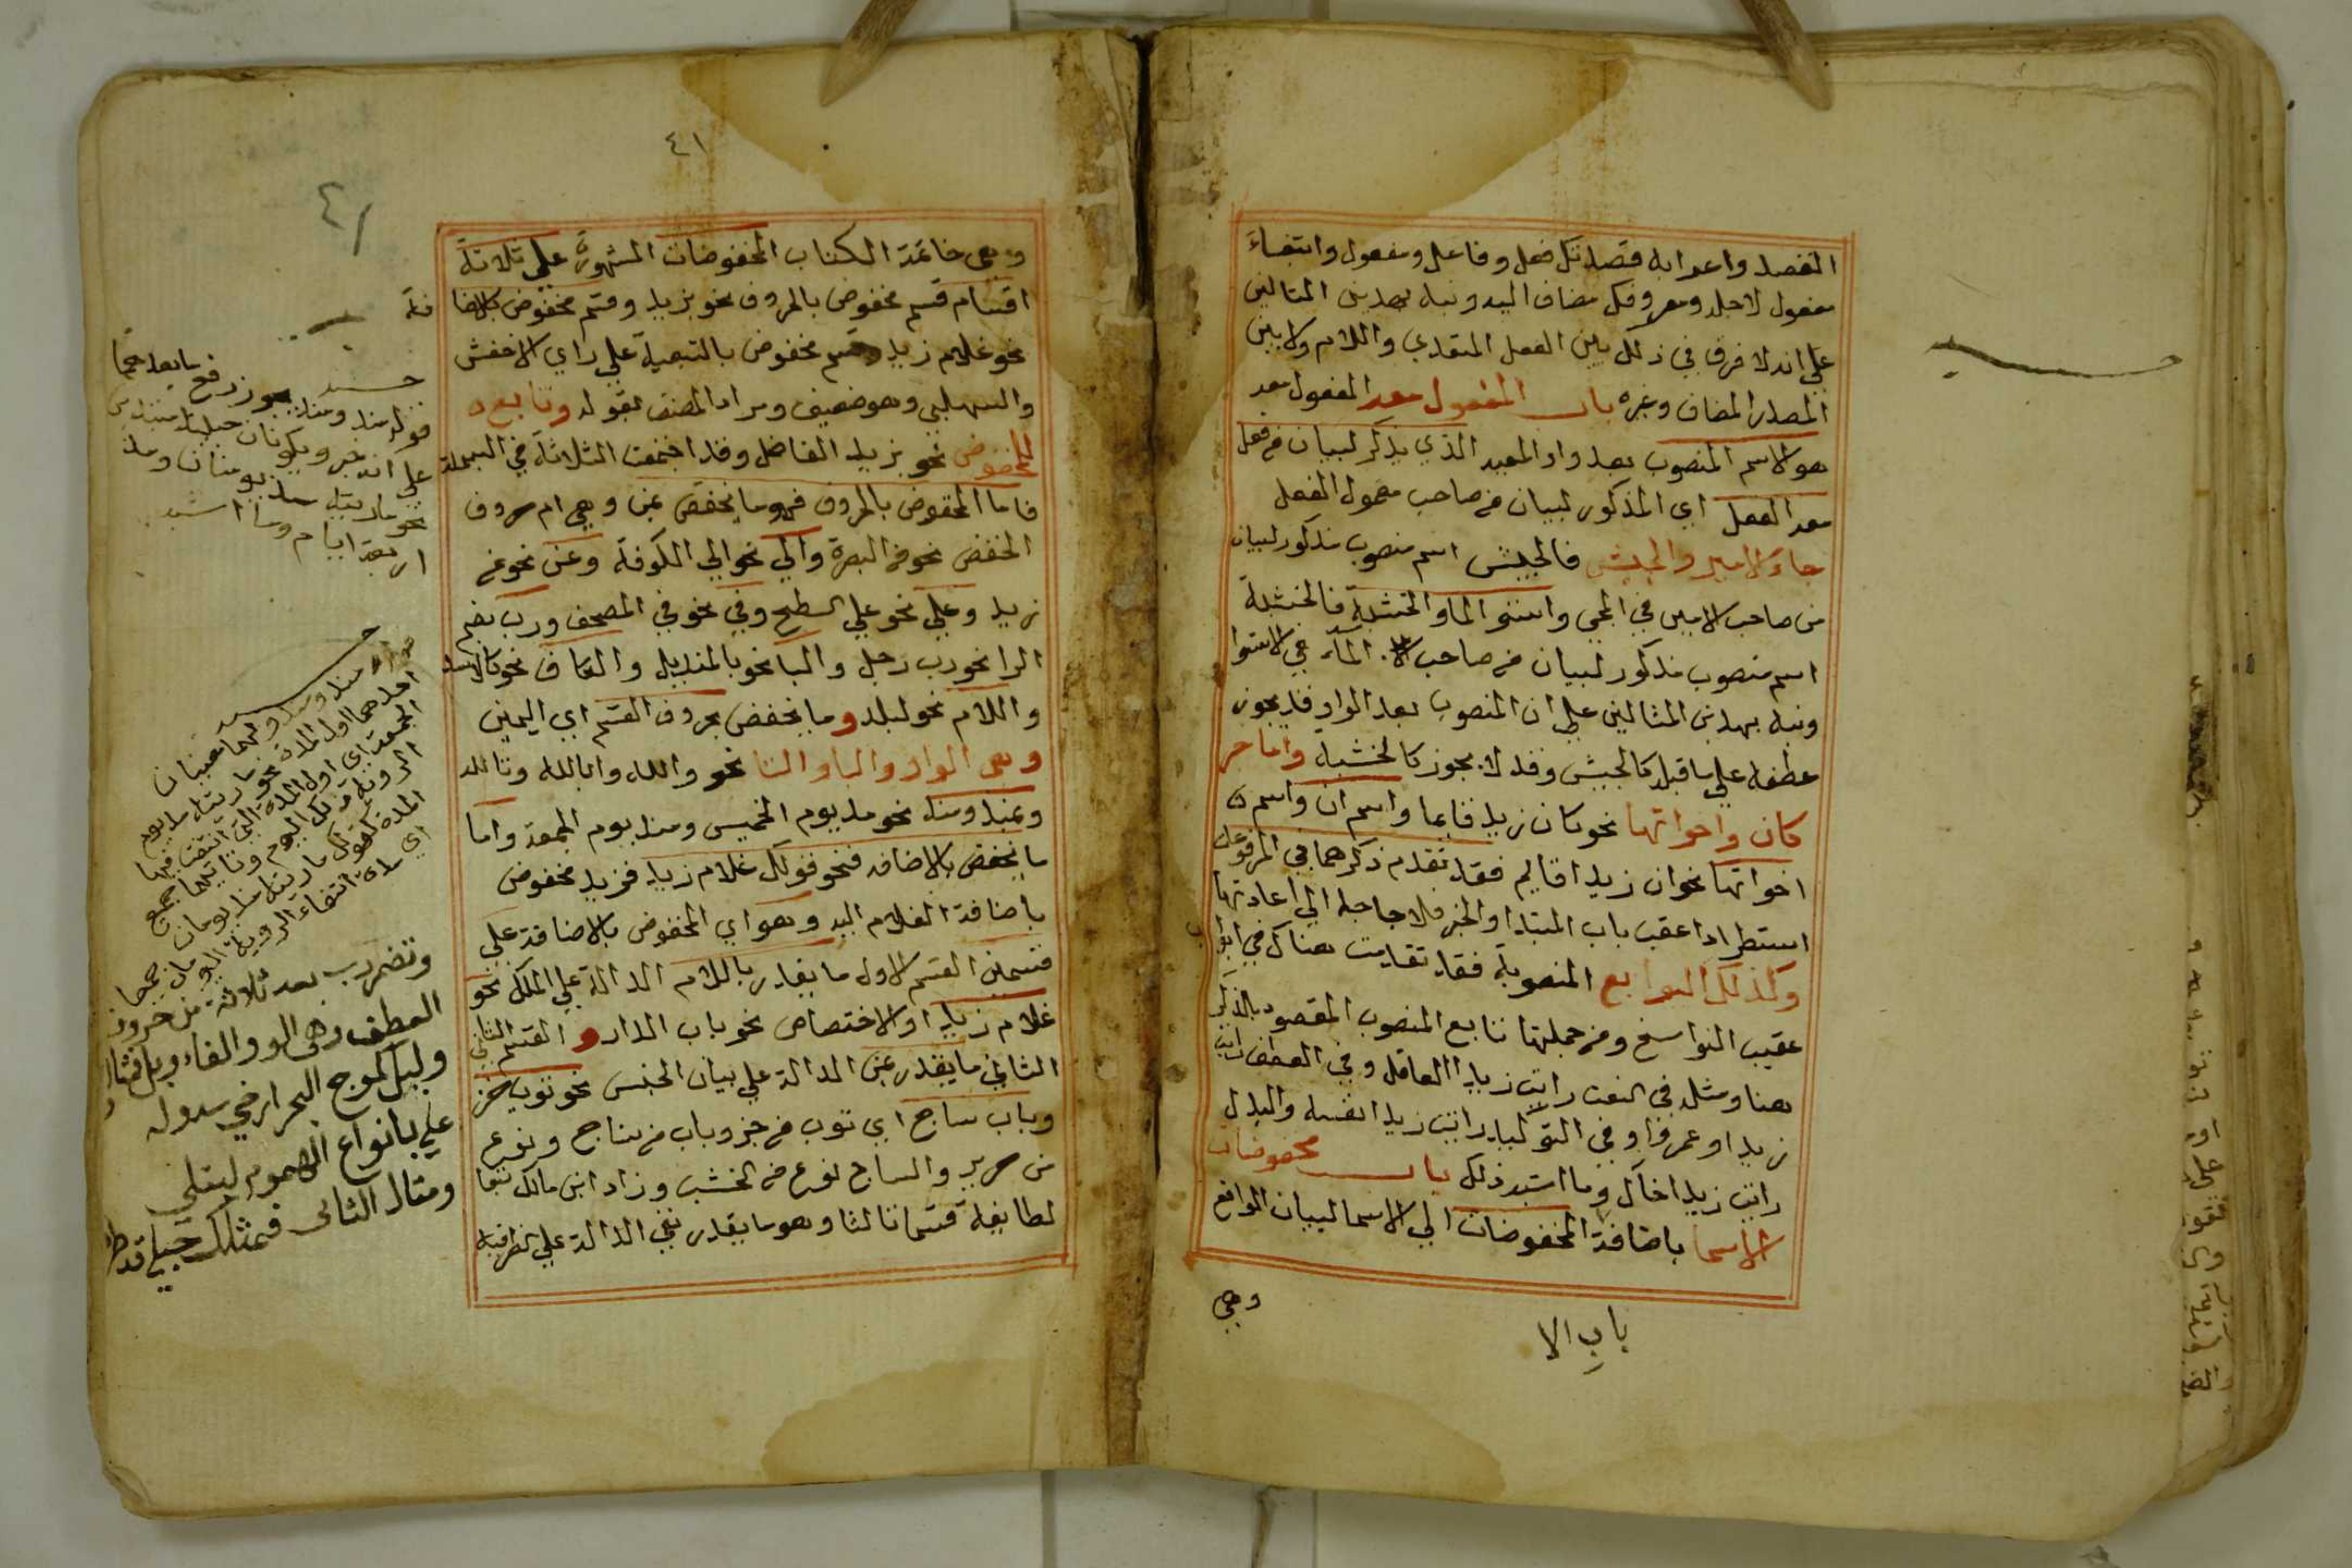 القصد واعرابه قصدتك فعل وفاعل ومفعول وابتغاء
مفعول لاجله ومعروفك مضاف اليه ونبه بهذين المثالين
علي انه لا فرق في ذلك بين الفعل المتعدي واللازم ولا بين
المصدر المضاف وغيره باب المفعول معه المفعول معه
هو الاسم المنصوب بعد واو المعيه الذي يذكر لبيان من فعل
معه الفعل اي المذكور لبيان من صاحب معمول الفعل
جاء الامير والجيش فالجيش اسم منصوب مذكور لبيان
من صاحب الامير في المجي واستوي الما والخشبة فالخشبة
اسم منصوب مذكور لبيان من صاحب الماء في الاستوا
ونبه بهذين المثالين علي ان المنصوب بعد الواو قد يجوز
عطفه علي ما قبله كالجيش وقد لا يجوز كالخشبه واما خبر
كان واخواتها نحو كان زيد قايما واسم ان واسم
اخواتها نحو ان زيدا قايم فقد تقدم ذكرهما في المرفوعات
استطرادا عقب باب المبتدا والخبر فلا حاجة الي اعادتها
وكذلك التوابع المنصوبة فقد تقدمت هناك في ابوا
ب
عقيب النواسخ ومن جملتها تابع المنصوب المقصود بالذكر
هنا ومثله في النعت رايت زيدا العاقل وفي العطف رايت
زيدا وعمرا وفي التوكيد رايت زيدا نفسه والبدل
رايت زيدا اخاك وما اشبه ذلك باب مخفوضات
الاسما باضافة المخفوضات الي الاسما لبيان الواقع
وهي
باب الا
٤١
٤١
وهي خاتمة الكتاب المخفوضات المشهورة علي ثلاثة
اقسام قسم مخفوض بالحروف نحو بزيد وقسم مخفوض بالاضا
فة
نحو غلام زيد وقسم مخفوض بالتبعية علي راي الاخفش
والسهيلي وهو ضعيف ومراد المصنف بقوله وتابع
للمخفوض نحو بزيد الفاضل وقد اجتمعت الثلاثة في البسملة
فاما المخفوض بالحروف فهو ما يخفض بمن وهي ام حروف
الخفض نحو من البصرة والي نحو الي الكوفة وعن نحو عن
زيد وعلي نحو علي السطح وفي نحو في المصحف ورب بضم
الرا نحو رب رجل والبا نحو بالمنديل والكاف نحو كالاسد
واللام نحو لبلد وما يخفض بحروف القسم اي اليمين
وهي الواو والبا والتا نحو والله وبالله وتالله
وبمذ ومنذ نحو مذ يوم الخميس ومنذ يوم الجمعة واما
ما يخفض بالاضافه فنحو قولك غلام زيد فزيد مخفوض
باضافة الغلام اليه وهو اي المخفوض بالاضافة علي
قسمين القسم الاول ما يقدر باللام الدالة علي الملك نحو
غلام زيد او الاختصاص نحو باب الدار و القسم الثاني
الثاني ما يقدر بمن الدالة علي بيان الجنس نحو ثوب خز
وباب ساج اي ثوب من خز وباب من ساج ونوع
من حرير والساج نوع من الخشب وزاد ابن مالك تبعا
لطايفة قسما ثالثا وهو ما يقدر بفي الدالة علي الظرفية
قوله منذ ومذ يجوز رفع ما بعدهما
علي انه خبر ويكونان حينئذ مبتدئين
نحو ما رايته مذ يومان ومنذ
اربعة ايام وما اشبه
احدهما اول المدة نحو ما رايته مذ يوم
الجمعة اي اول المدة التي انتفت فيها
الروية
المدة كقولك ما رايته مذ يومان
اي مدة انتفاء الروية
وتضمر رب بعد ثلاثة من حروف
العطف وهي الواو والفاء وبل مثال
وليل كموج البحر ارخي سدوله
علي بانواع الهموم ليبتلي
ومثال الثاني فمثلك حبلي قد طر